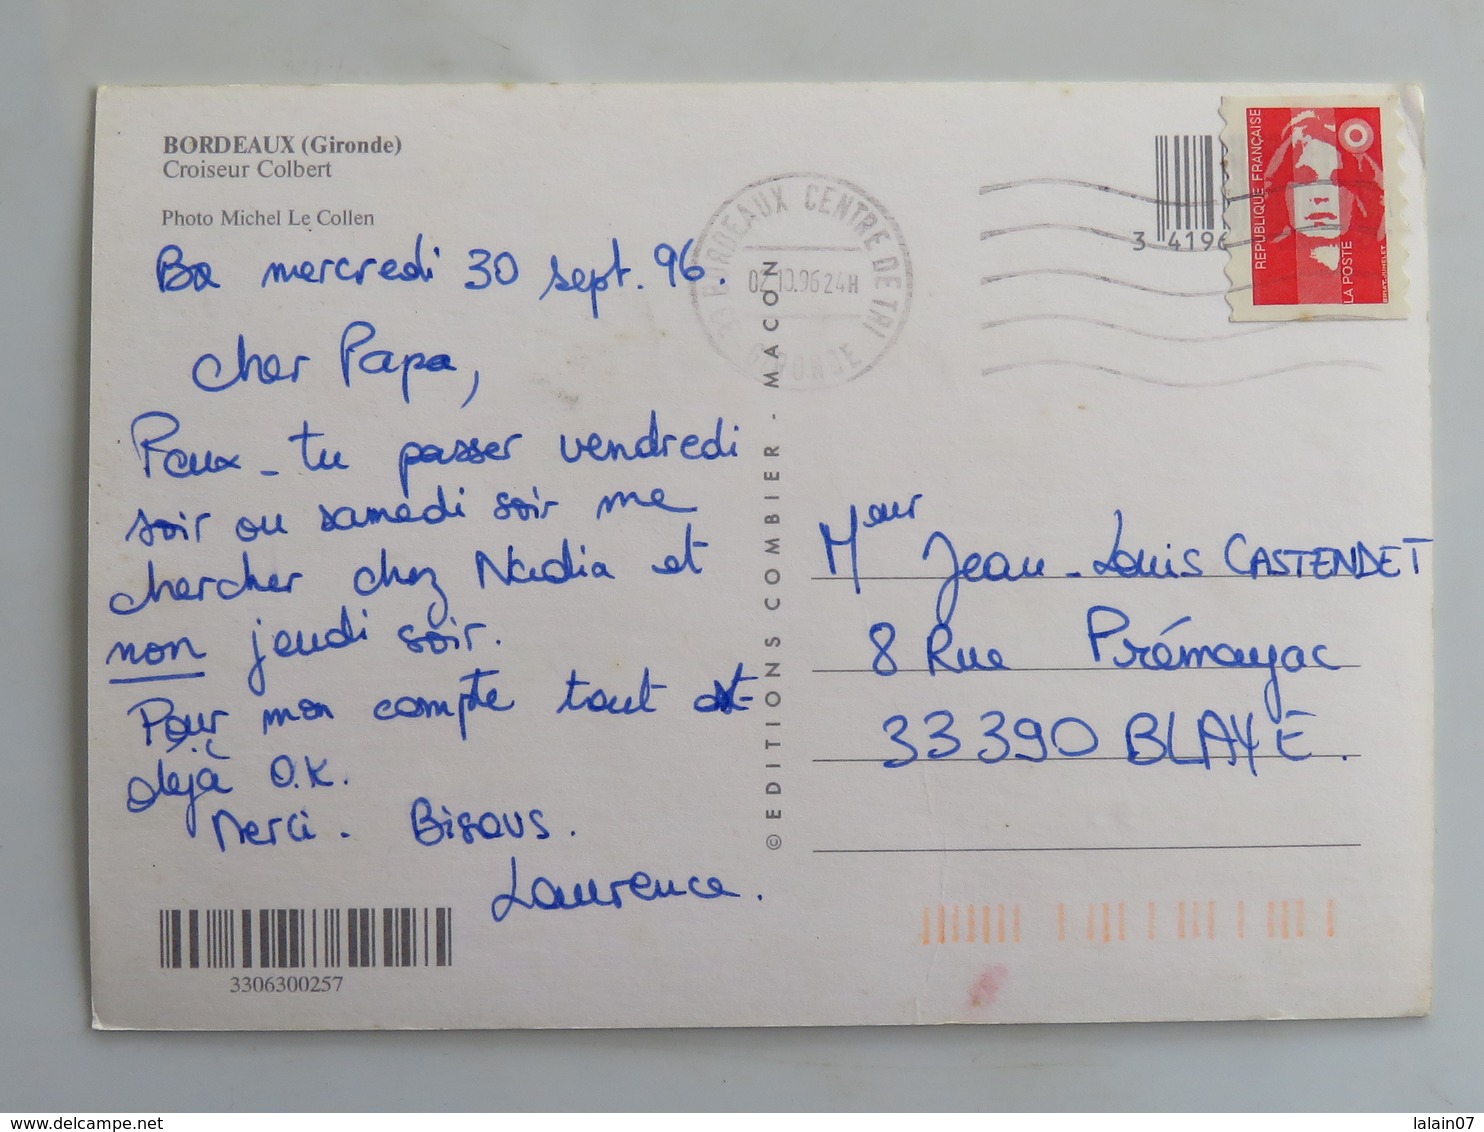 BORDEAUX (Gironde)
Croiseur Colbert
Photo Michel Le Collen
Bx mercredi 30 sept. 96.
Cher Papa,
Peux-tu passer vendredi
soir ou samedi soir me
chercher chez Nadia et
non jeudi soir.
Pour mon compte tout est
déjà O.K.
Merci. Bisous.
Laurence.
3306300257
© EDITIONS COMBIER - MACON
33 BORDEAUX CENTRE DE TRI
02.10.96 24H
GIRONDE
3 4196
REPUBLIQUE FRANÇAISE
LA POSTE
Meur Jean-Louis CASTENDET
8 Rue Prémayac
33390 BLAYE.
www.delcampe.net
lalain07